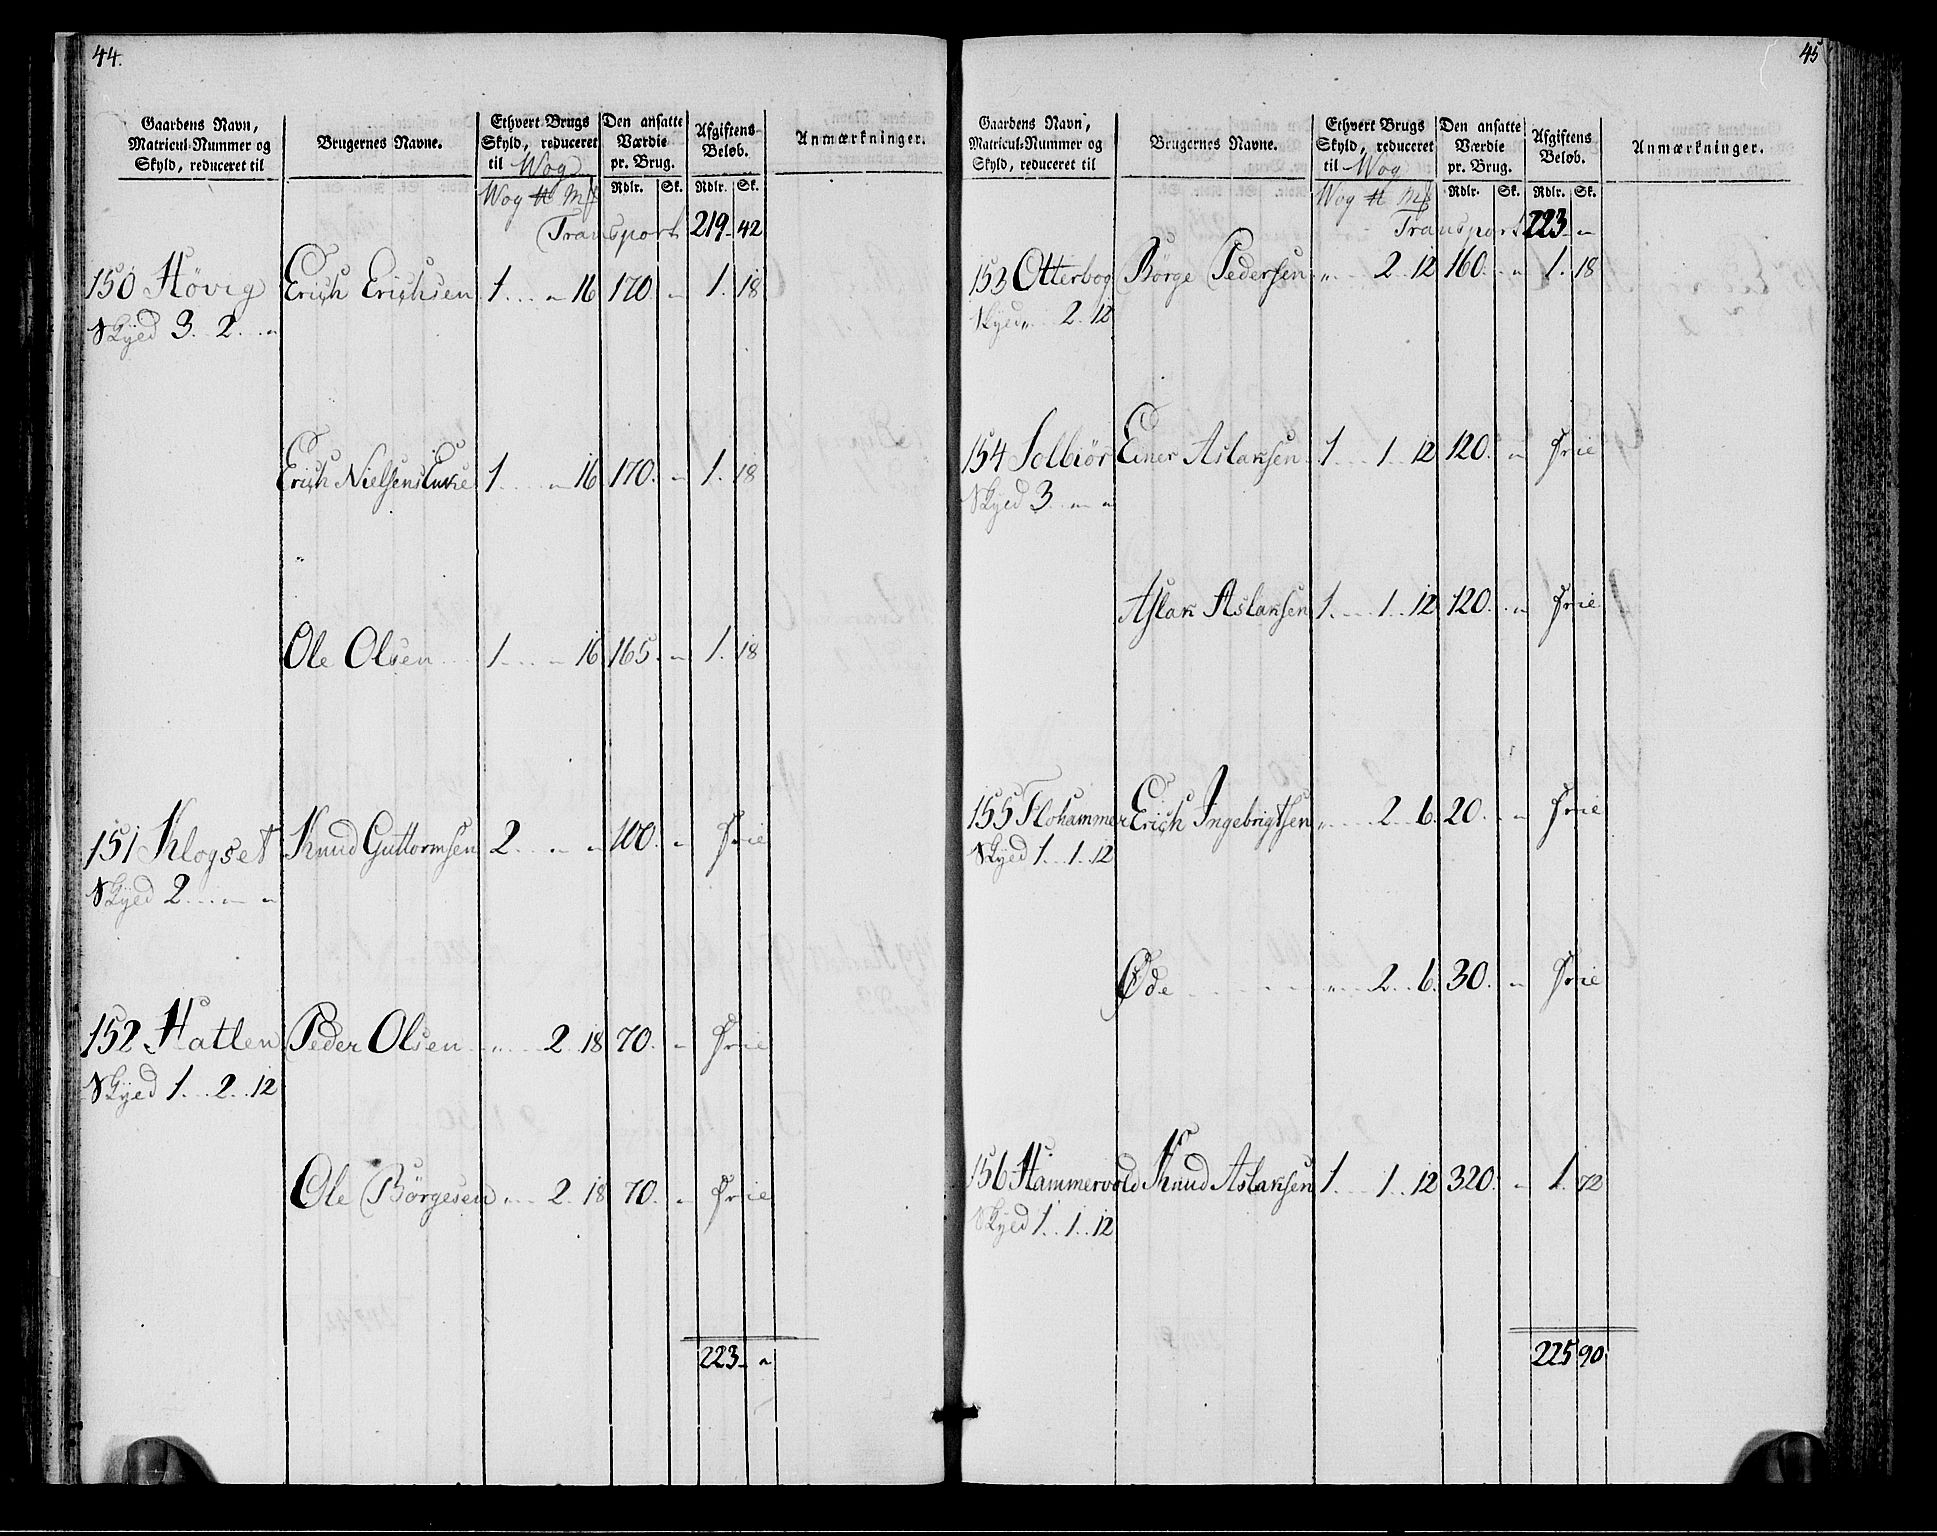 44.
Gaardens Navn, Matricul-Nummer og Skyld, reduceret til | Brugernes Navne. | Ethvert Brugs Skyld, reduceret til Wog | Den ansatte Værdie pr. Brug. | Afgiftens-Beløb. | Anmærkninger.
Wog ℔ Mk | Rdlr. | Sk. | Rdlr. | Sk.
Transport 219 - 42
150 Høvig Erich Erichsen 1 .. „ 16 170 „ 1. 18
Skyed 3. 2. .. „
Erich Nielsens Enke 1 .. „ 16 170. „ 1. 18
Ole Olsen 1 .. „ 16 165. „ 1. 18
151 Klogset Knud Guttormsen 2 .. „ „ 100. „ Frie
Skyed 2 .. „ „
152 Hatlen Peder Olsen „ 2. 18 70. „ Frie
Skyed 1. 2. 12
Ole Børgesen „ 2. 18 70. „ Frie
223 - „
45
Gaardens Navn, Matricul-Nummer og Skyld, reduceret til | Brugernes Navne. | Ethvert Brugs Skyld, reduceret til Wog | Den ansatte Værdie pr. Brug. | Afgiftens Beløb. | Anmærkninger.
Wog ℔ Mk | Rdlr. | Sk. | Rdlr. | Sk.
Transport 223 - „
153 Otterbog Børge Pedersen „ 2. 12 160. „ 1. 18
Skyed „ 2. 12
154 Solbiør Einer Aslaksen 1 .. 1. 12 120. „ Frie
Skyed 3. „ „
Aslak Aslaksen 1 .. 1. 12 120. „ Frie
155 Flohammer Erich Ingebrigtsen „ 2. 6. 20. „ Frie
Skyed 1. 1. 12
Øde „ 2. 6. 30. „ Frie
156 Hammervold Knud Aslaksen 1 .. 1. 12 320. „ 1. 72
Skyed 1. 1. 12
225 90.